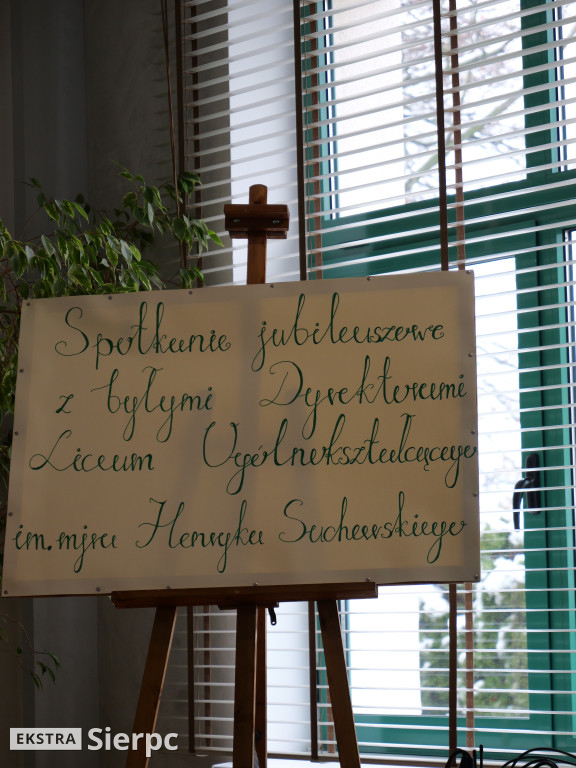 Spotkanie jubileuszowe
z byłymi Dyrektorami
Liceum Ogólnokształcącego
im. mjra Henryka Sucharskiego
EKSTRA Sierpc